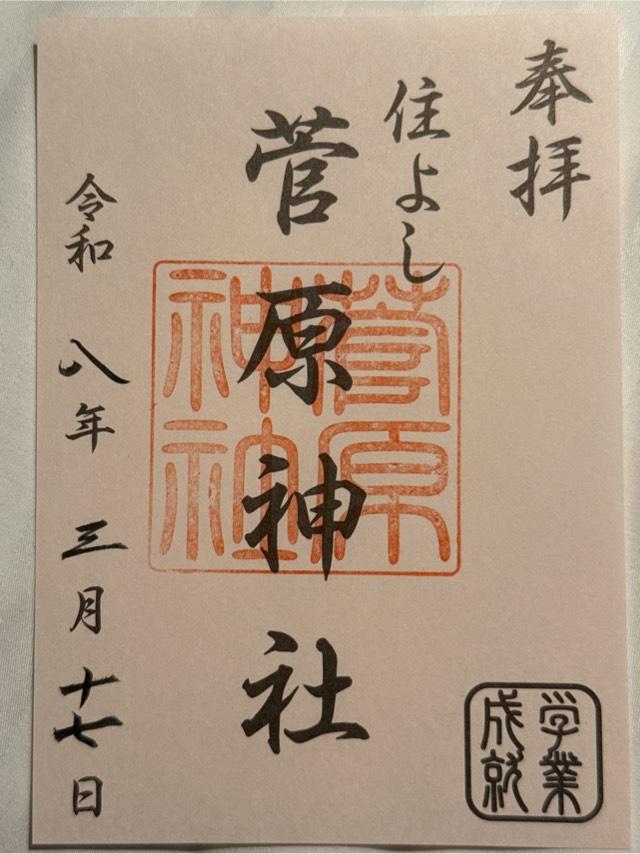 奉拝
住よし
菅原神社
菅原神社
令和八年三月十七日
学業成就